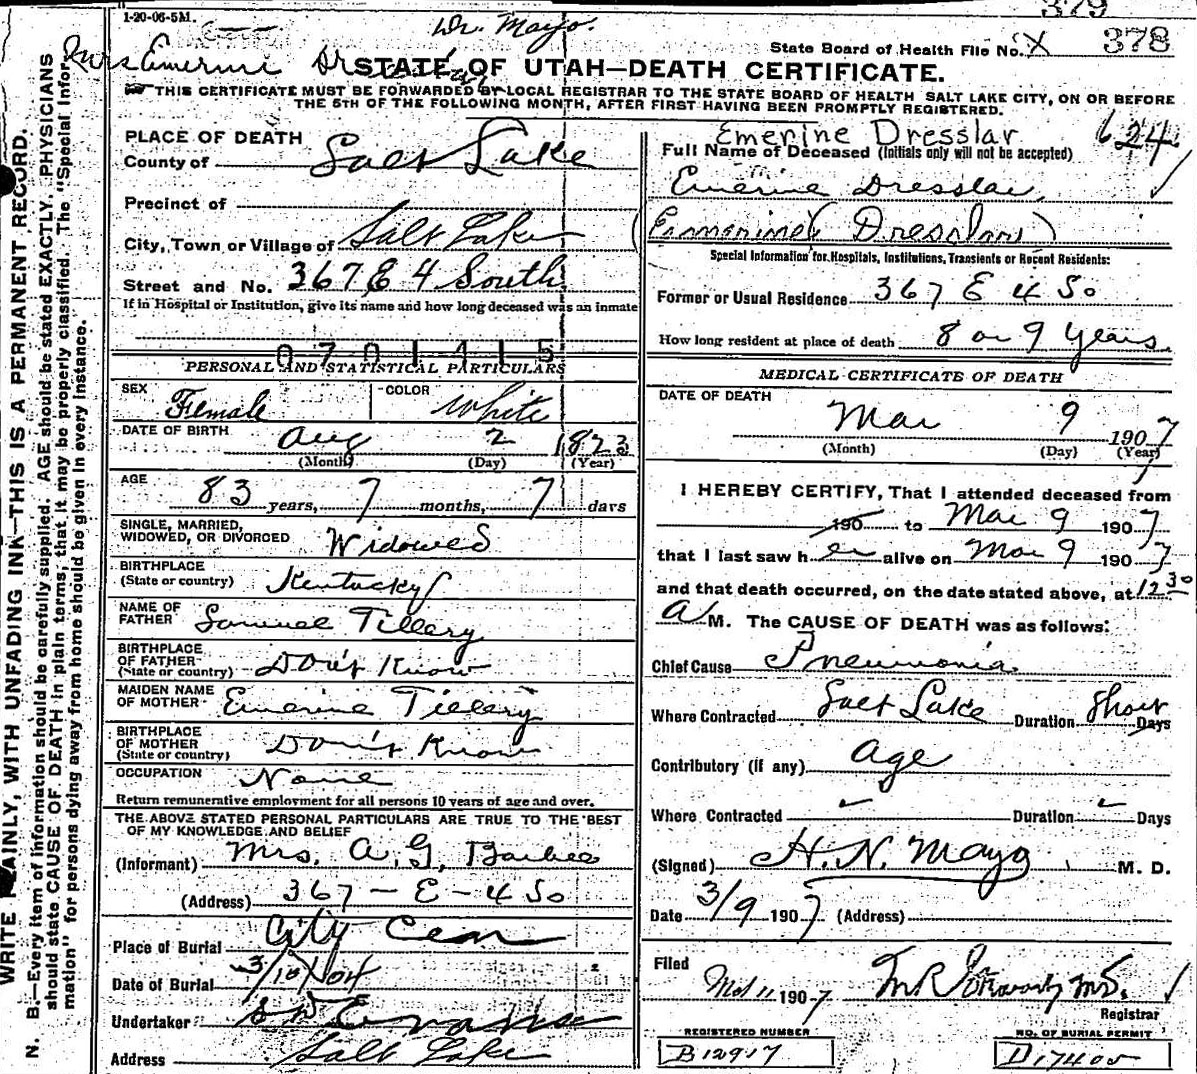 379
1-20-06-5M.
Dr. Mayo.
State Board of Health File No. X 378
Mrs Emerine
STATE OF UTAH—DEATH CERTIFICATE.
THIS CERTIFICATE MUST BE FORWARDED BY LOCAL REGISTRAR TO THE STATE BOARD OF HEALTH SALT LAKE CITY, ON OR BEFORE
THE 5TH OF THE FOLLOWING MONTH, AFTER FIRST HAVING BEEN PROMPTLY REGISTERED.
WRITE PLAINLY, WITH UNFADING INK—THIS IS A PERMANENT RECORD.
N. B.—Every item of information should be carefully supplied. AGE should be stated EXACTLY. PHYSICIANS
should state CAUSE OF DEATH in plain terms, that it may be properly classified. The "Special Infor-
mation" for persons dying away from home should be given in every instance.
PLACE OF DEATH
County of Salt Lake
Precinct of
City, Town or Village of Salt Lake
Street and No. 367 E 4 South
If in Hospital or Institution, give its name and how long deceased was an inmate
0701415
PERSONAL AND STATISTICAL PARTICULARS
SEX Female COLOR White
DATE OF BIRTH Aug 2 1823
(Month) (Day) (Year)
AGE 83 years, 7 months, 7 days
SINGLE, MARRIED,
WIDOWED, OR DIVORCED Widowed
BIRTHPLACE
(State or country) Kentucky
NAME OF
FATHER Samuel Tillery
BIRTHPLACE
OF FATHER
(State or country) Don't Know
MAIDEN NAME
OF MOTHER Emerine Tillery
BIRTHPLACE
OF MOTHER
(State or country) Don't Know
OCCUPATION None
Return remunerative employment for all persons 10 years of age and over.
THE ABOVE STATED PERSONAL PARTICULARS ARE TRUE TO THE BEST
OF MY KNOWLEDGE AND BELIEF
(Informant) Mrs. A. G. Barbee
(Address) 367 - E - 4 So
Place of Burial City Cem
Date of Burial 3/10/07
Undertaker Evans
Address Salt Lake
Emerine Dresslar 624
Full Name of Deceased (Initials only will not be accepted)
Emerine Dresslar
(Emmerine Dresslar)
Special Information for Hospitals, Institutions, Transients or Recent Residents:
Former or Usual Residence 367 E 4 So
How long resident at place of death 8 or 9 Years
MEDICAL CERTIFICATE OF DEATH
DATE OF DEATH
Mar 9 1907
(Month) (Day) (Year)
I HEREBY CERTIFY, That I attended deceased from
190 to Mar 9 1907
that I last saw her alive on Mar 9 1907
and that death occurred, on the date stated above, at 12 30
A M. The CAUSE OF DEATH was as follows:
Chief Cause Pneumonia
Where Contracted Salt Lake Duration Short Days
Contributory (if any) Age
Where Contracted Duration Days
(Signed) H. N. Mayo M. D.
Date 3/9 1907 (Address)
Filed
Mch 11 1907
Registrar
REGISTERED NUMBER
B12917
NO. OF BURIAL PERMIT
D17405